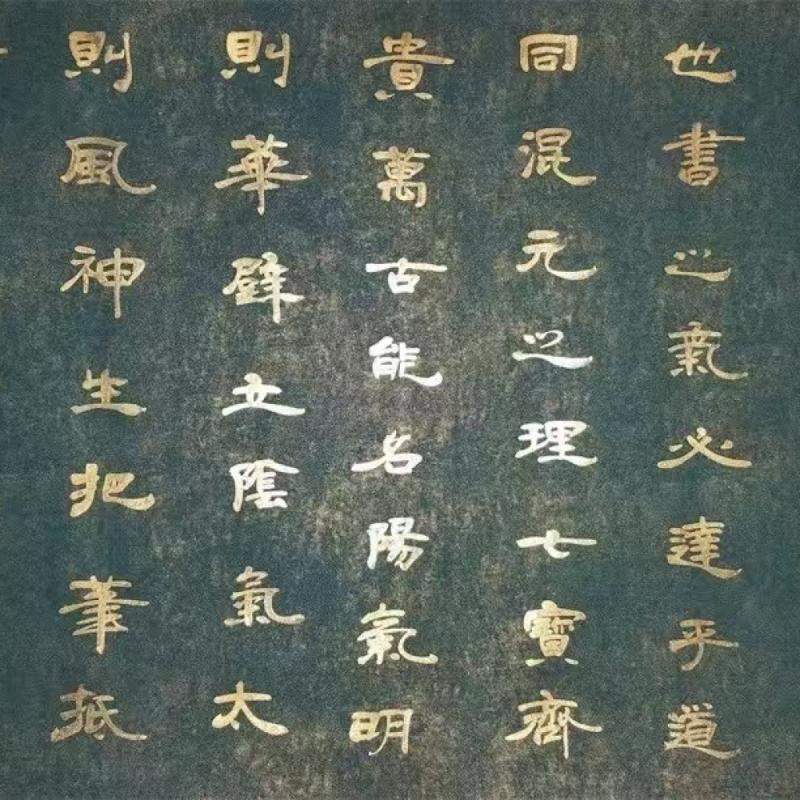 也書之氣必達乎道
同混元之理七寶齊
貴萬古能名陽氣明
則華壁立陰氣太
則風神生把筆抵